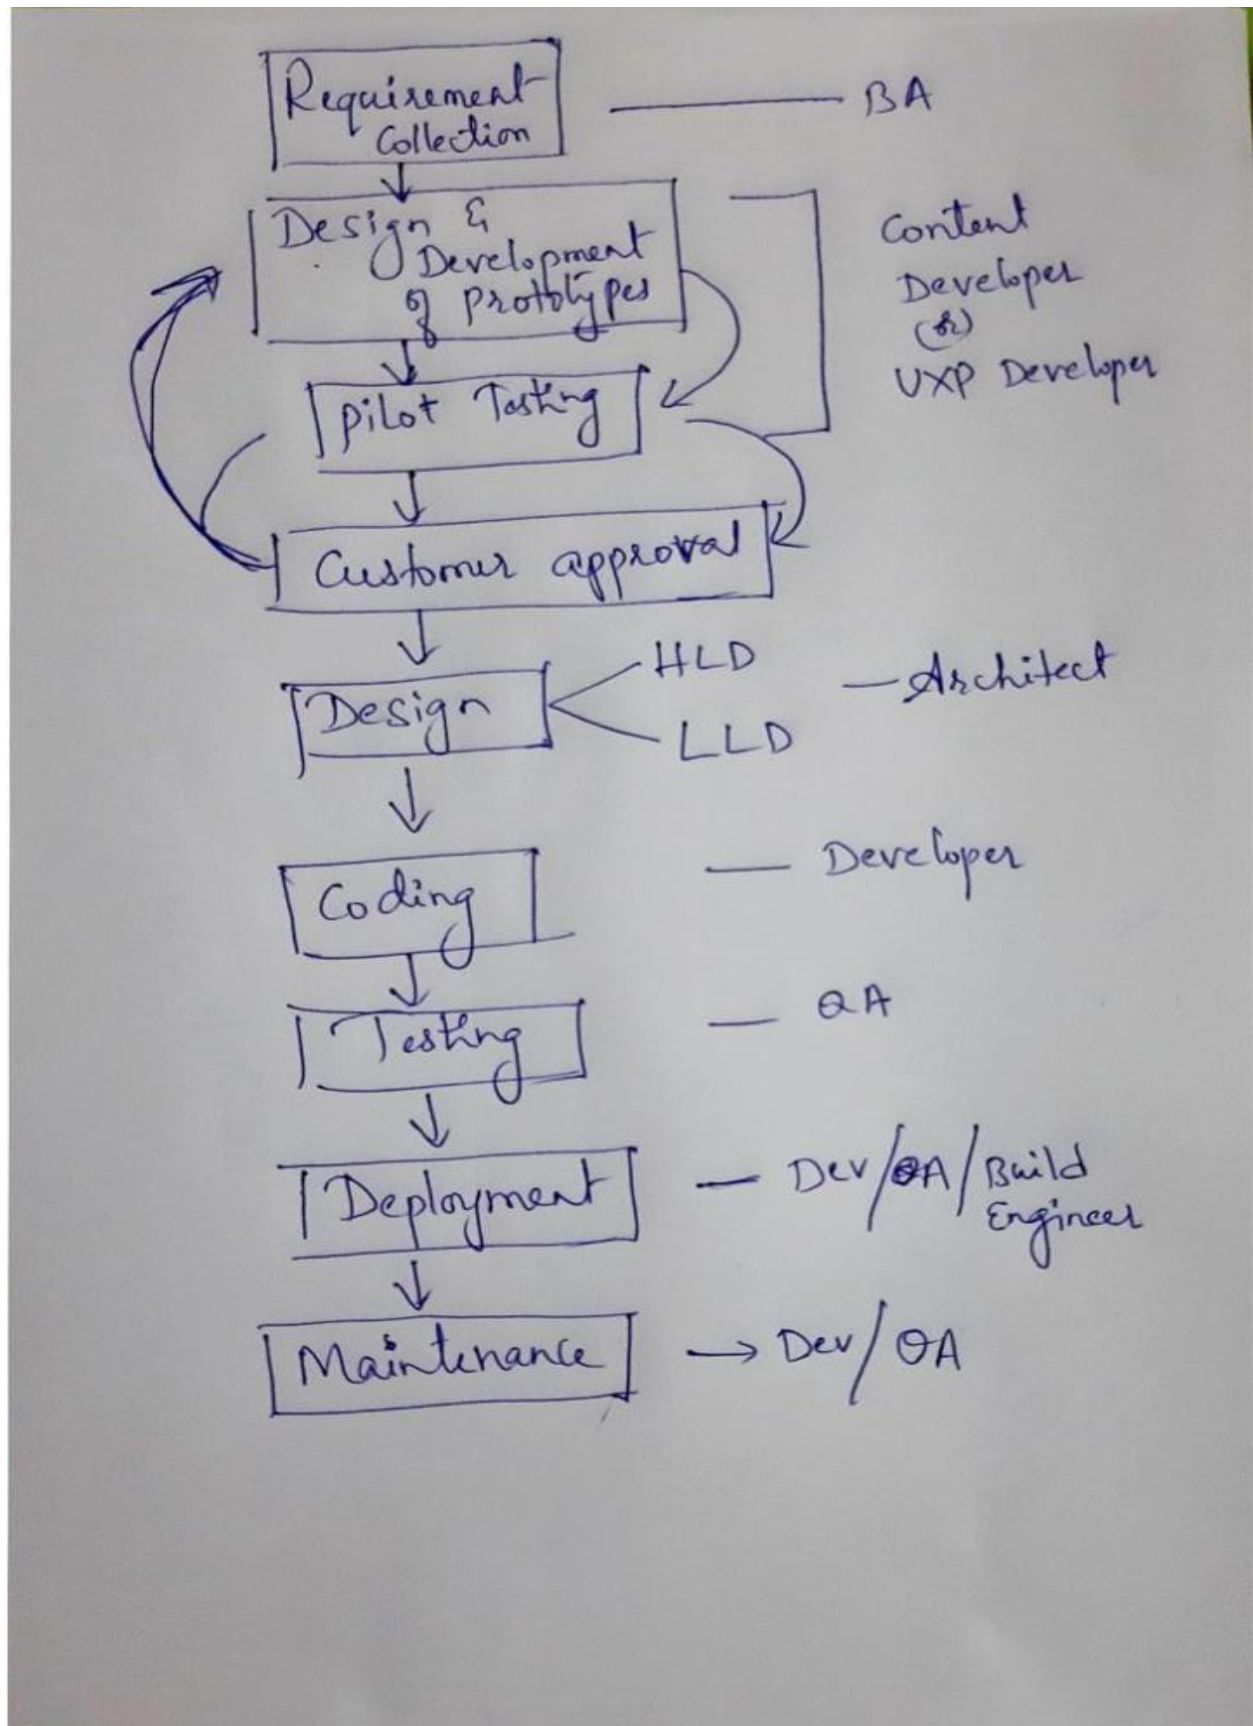 Requirement
Collection
BA
Design &
Development
of Prototypes
Content
Developer
(or)
UXP Developer
Pilot Testing
Customer approval
Design
HLD
LLD
Architect
Coding
Developer
Testing
QA
Deployment
Dev/QA/Build
Engineer
Maintenance
Dev/QA